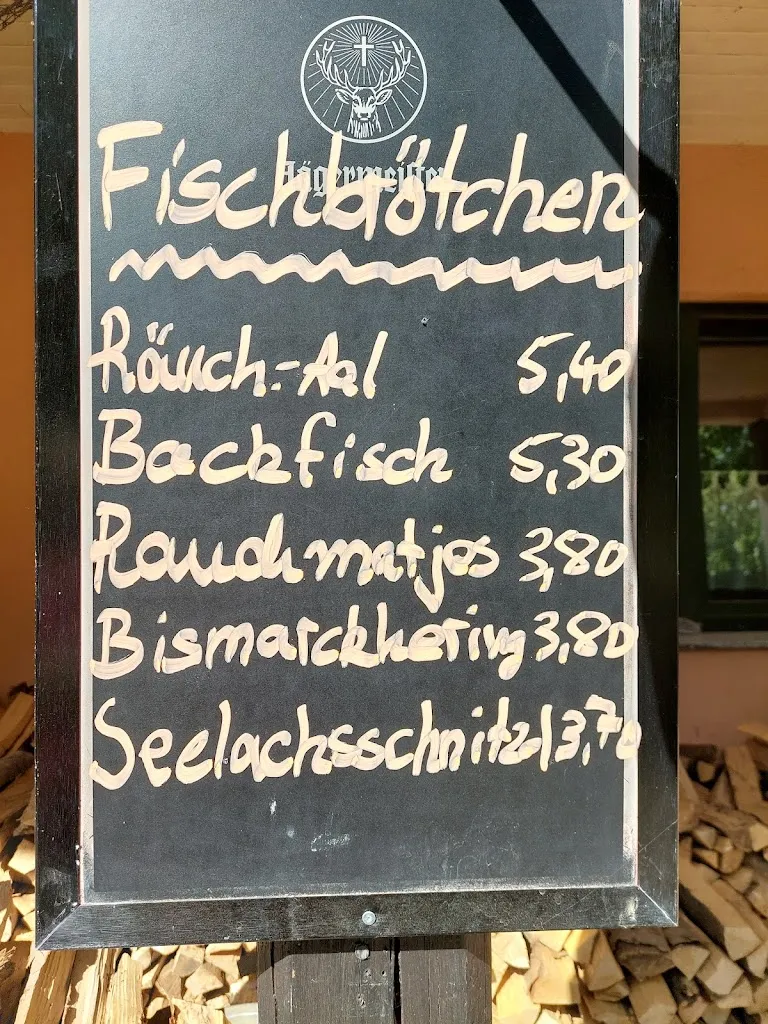 Jägermeister
Fischbrötchen
Räuch.-Aal 5,40
Backfisch 5,30
Rauchmatjes 3,80
Bismarckhering 3,80
Seelachsschnitzl 3,70